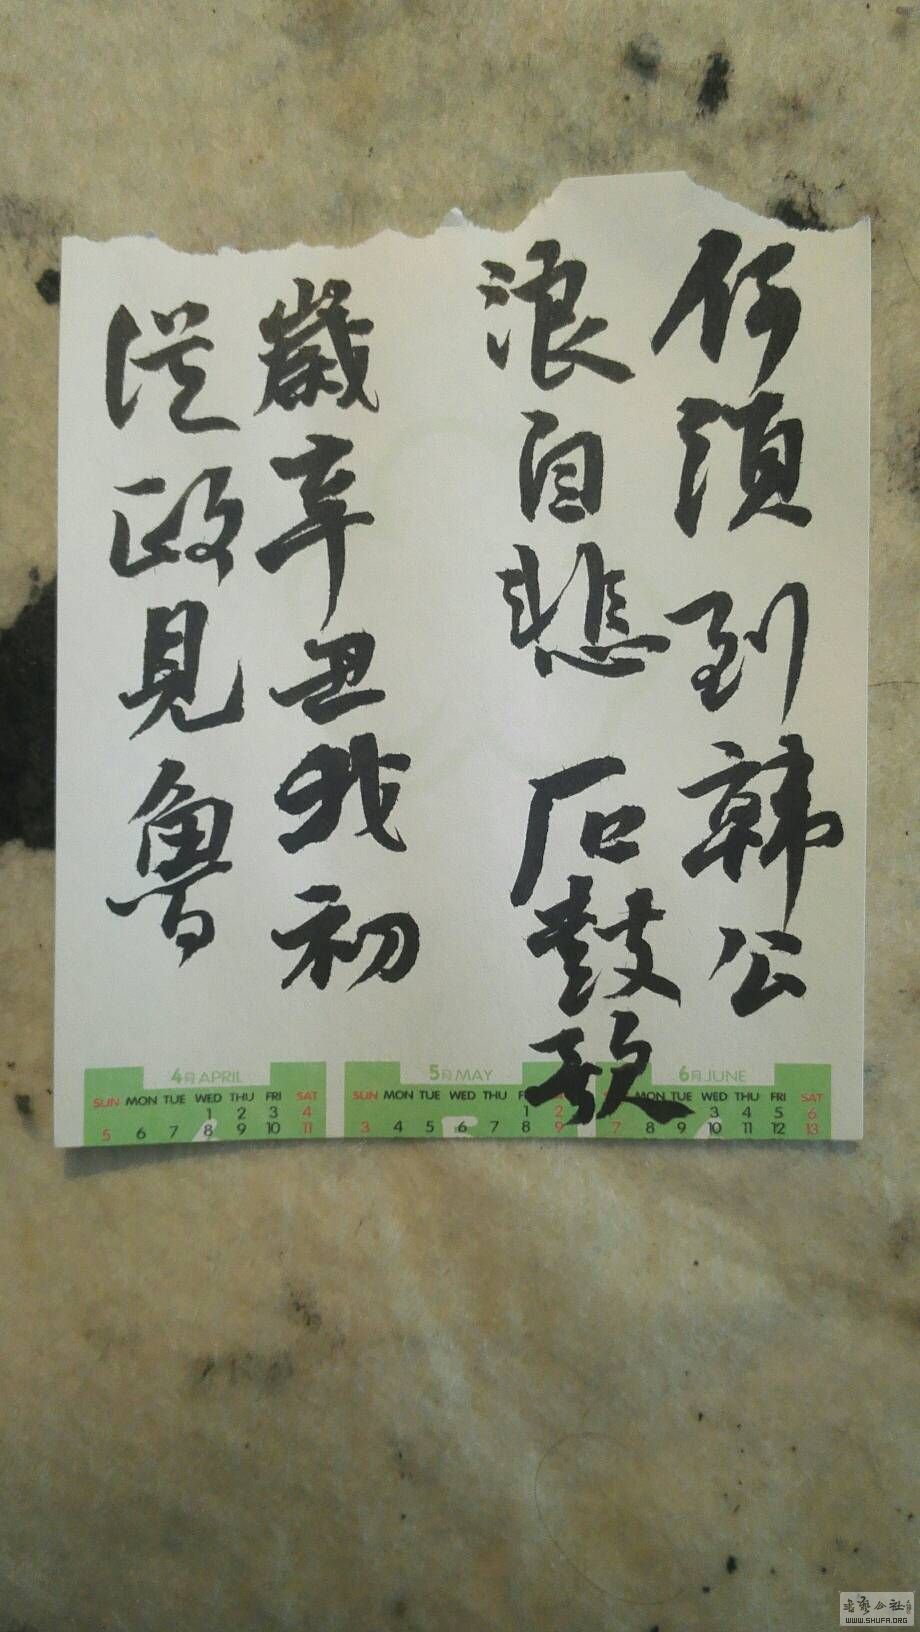 何須到韩公
浪自悲 石鼓歌
歲辛丑我初
從政見魯
4月 APRIL
SUN MON TUE WED THU FRI SAT
1 2 3 4
5 6 7 8 9 10 11
5月 MAY
SUN MON TUE WED THU
1 2
3 4 5 6 7 8 9
6月 JUNE
MON TUE WED THU FRI SAT
3 4 5 6
7 8 9 10 11 12 13
WWW.SHUFA.ORG